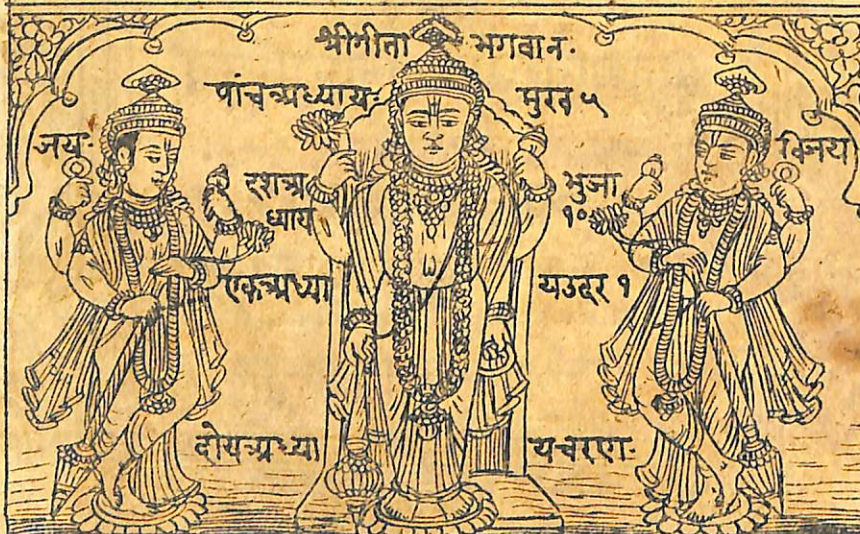 श्रीगीता भगवान·
पांचअध्याय· मुख ५
जय· विजय
दशअ भुजा
ध्याय १०
एकअध्या यउदर १
दोयअध्या यचरण·